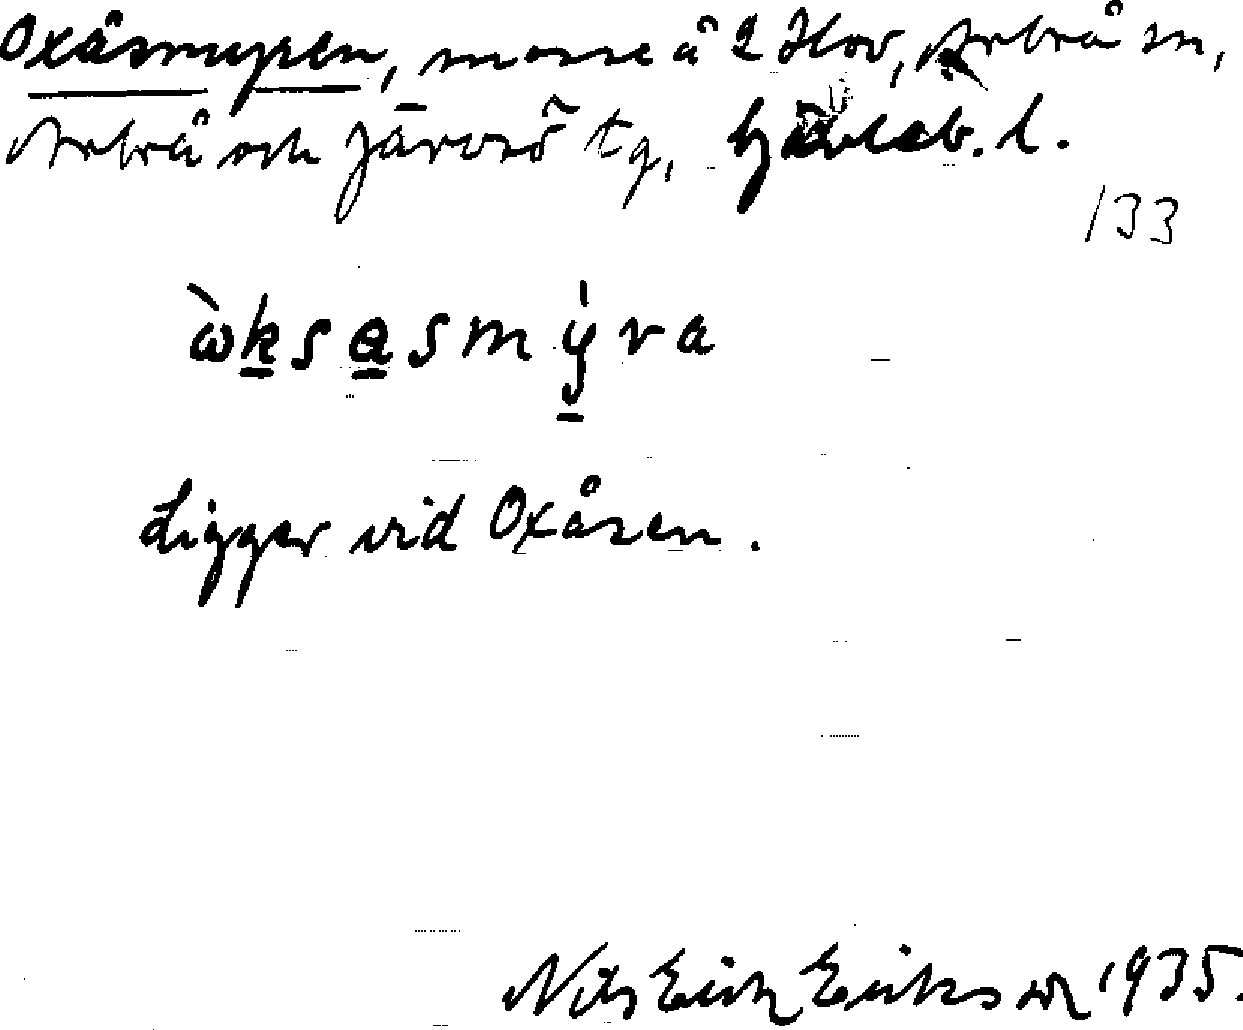 Oxåsmyren, mosse å 2 Hov, Arbrå sn,
Arbrå och Järvsö tg, Gävleb. l.
133
ὼksasmýra
Ligger vid Oxåsen.
Nils Erik Eriksson 1935.